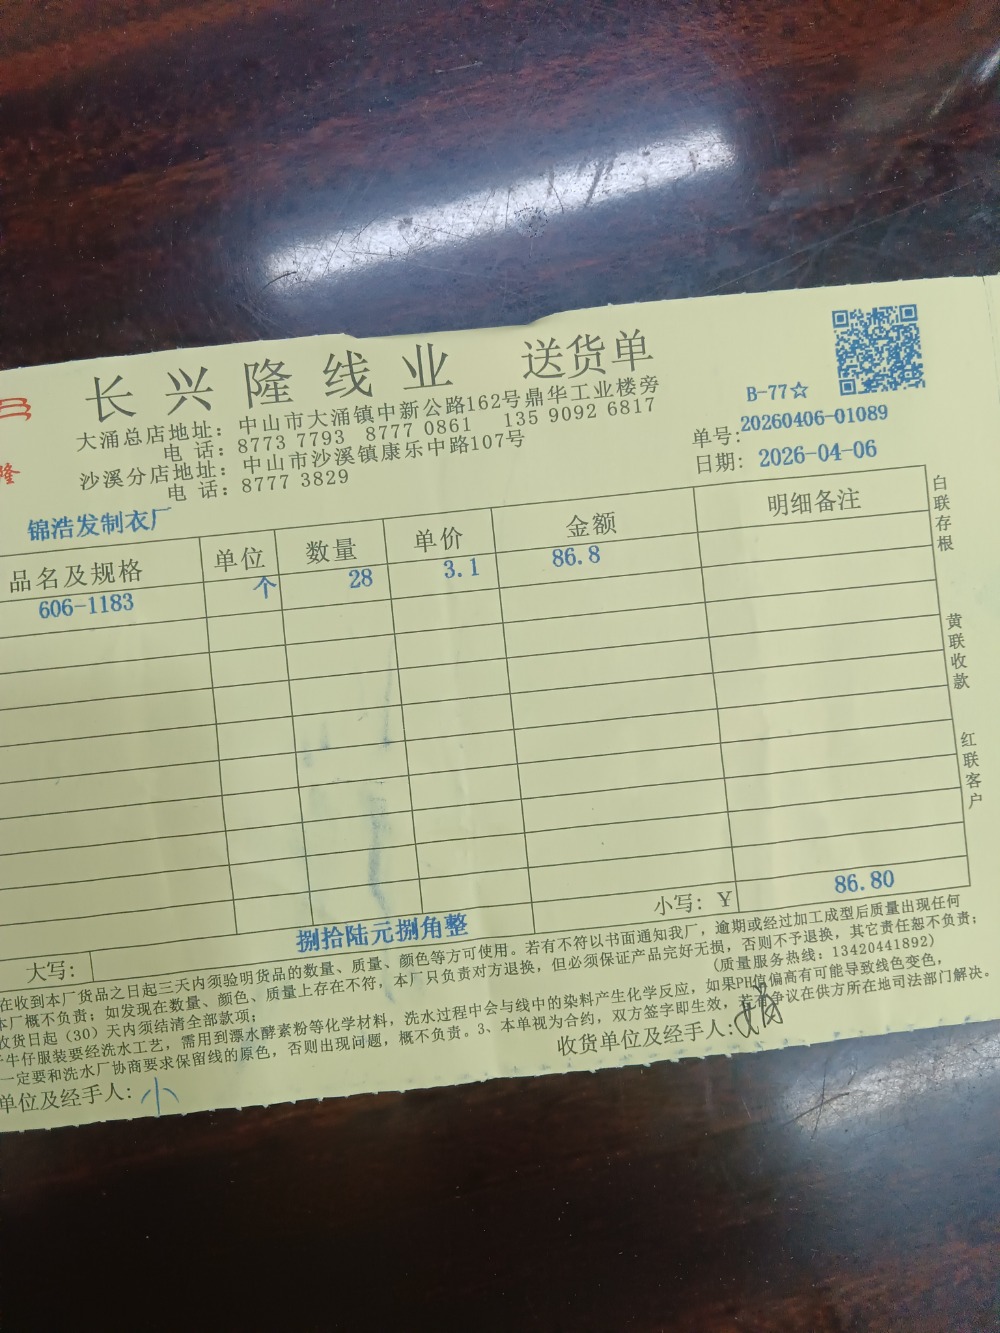 长兴隆线业 送货单
大涌总店地址：中山市大涌镇中新公路162号鼎华工业楼旁
电 话：8773 7793 8777 0861 135 9092 6817
沙溪分店地址：中山市沙溪镇康乐中路107号
电 话：8777 3829
B-77☆
单号：20260406-01089
日期：2026-04-06
隆
锦浩发制衣厂
品名及规格 单位 数量 单价 金额 明细备注
606-1183 个 28 3.1 86.8
白联存根
黄联收款
红联客户
小写：￥ 86.80
大写： 捌拾陆元捌角整
在收到本厂货品之日起三天内须验明货品的数量、质量、颜色等方可使用。若有不符以书面通知我厂，逾期或经过加工成型后质量出现任何
本厂概不负责；如发现在数量、颜色、质量上存在不符，本厂只负责对方退换，但必须保证产品完好无损，否则不予退换，其它责任恕不负责；
收货日起（30）天内须结清全部款项； （质量服务热线：13420441892）
牛仔服装要经洗水工艺，需用到漂水酵素粉等化学材料，洗水过程中会与线中的染料产生化学反应，如果PH值偏高有可能导致线色变色，
一定要和洗水厂协商要求保留线的原色，否则出现问题，概不负责。3、本单视为合约，双方签字即生效，若有争议在供方所在地司法部门解决。
单位及经手人：小 收货单位及经手人：